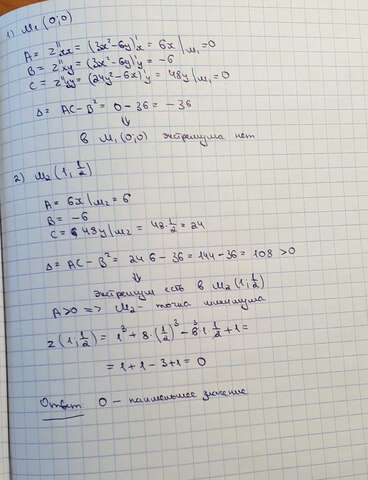 1) M₁ (0;0)
A = z''xx = (3x²-6y)'x = 6x|M₁ = 0
B = z''xy = (3x²-6y)'y = -6
C = z''yy = (24y²-6x)'y = 48y|M₁ = 0
Δ = AC - B² = 0 - 36 = -36
⇓
в M₁ (0;0) экстремума нет
2) M₂ (1; 1/2)
A = 6x|M₂ = 6
B = -6
C = 48y|M₂ = 48·1/2 = 24
Δ = AC - B² = 24 6 - 36 = 144 - 36 = 108 > 0
⇓
экстремум есть в M₂ (1; 1/2)
A>0 => M₂ - точка минимума
z (1; 1/2) = 1³ + 8·(1/2)³ - 6·1·1/2 + 1 =
= 1 + 1 - 3 + 1 = 0
Ответ 0 - наименьшее значение